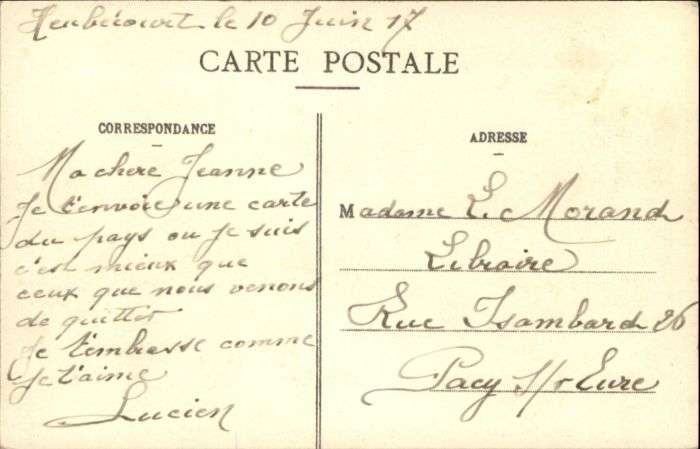 Heubécourt le 10 Juin 17
CARTE POSTALE
CORRESPONDANCE
Ma chere Jeanne
Je t'envoie une carte
du pays ou je suis
c'est mieux que
ceux que nous venons
de quitter
Je t'embrasse comme
je t'aime
Lucien
ADRESSE
Madame L. Morand
Libraire
Rue Isambard 26
Pacy s/r Eure